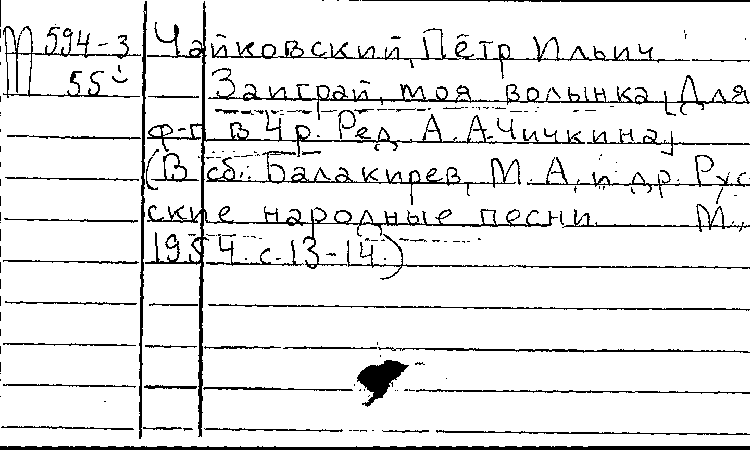 М 594-3 Чайковский, Пётр Ильич.
55 Заиграй, моя волынка [Для
ф-п в 4 р. Ред. А. А. Чичкина]
(В сб.: Балакирев, М. А. и др. Рус-
ские народные песни. М.,
1954. с. 13-14.)